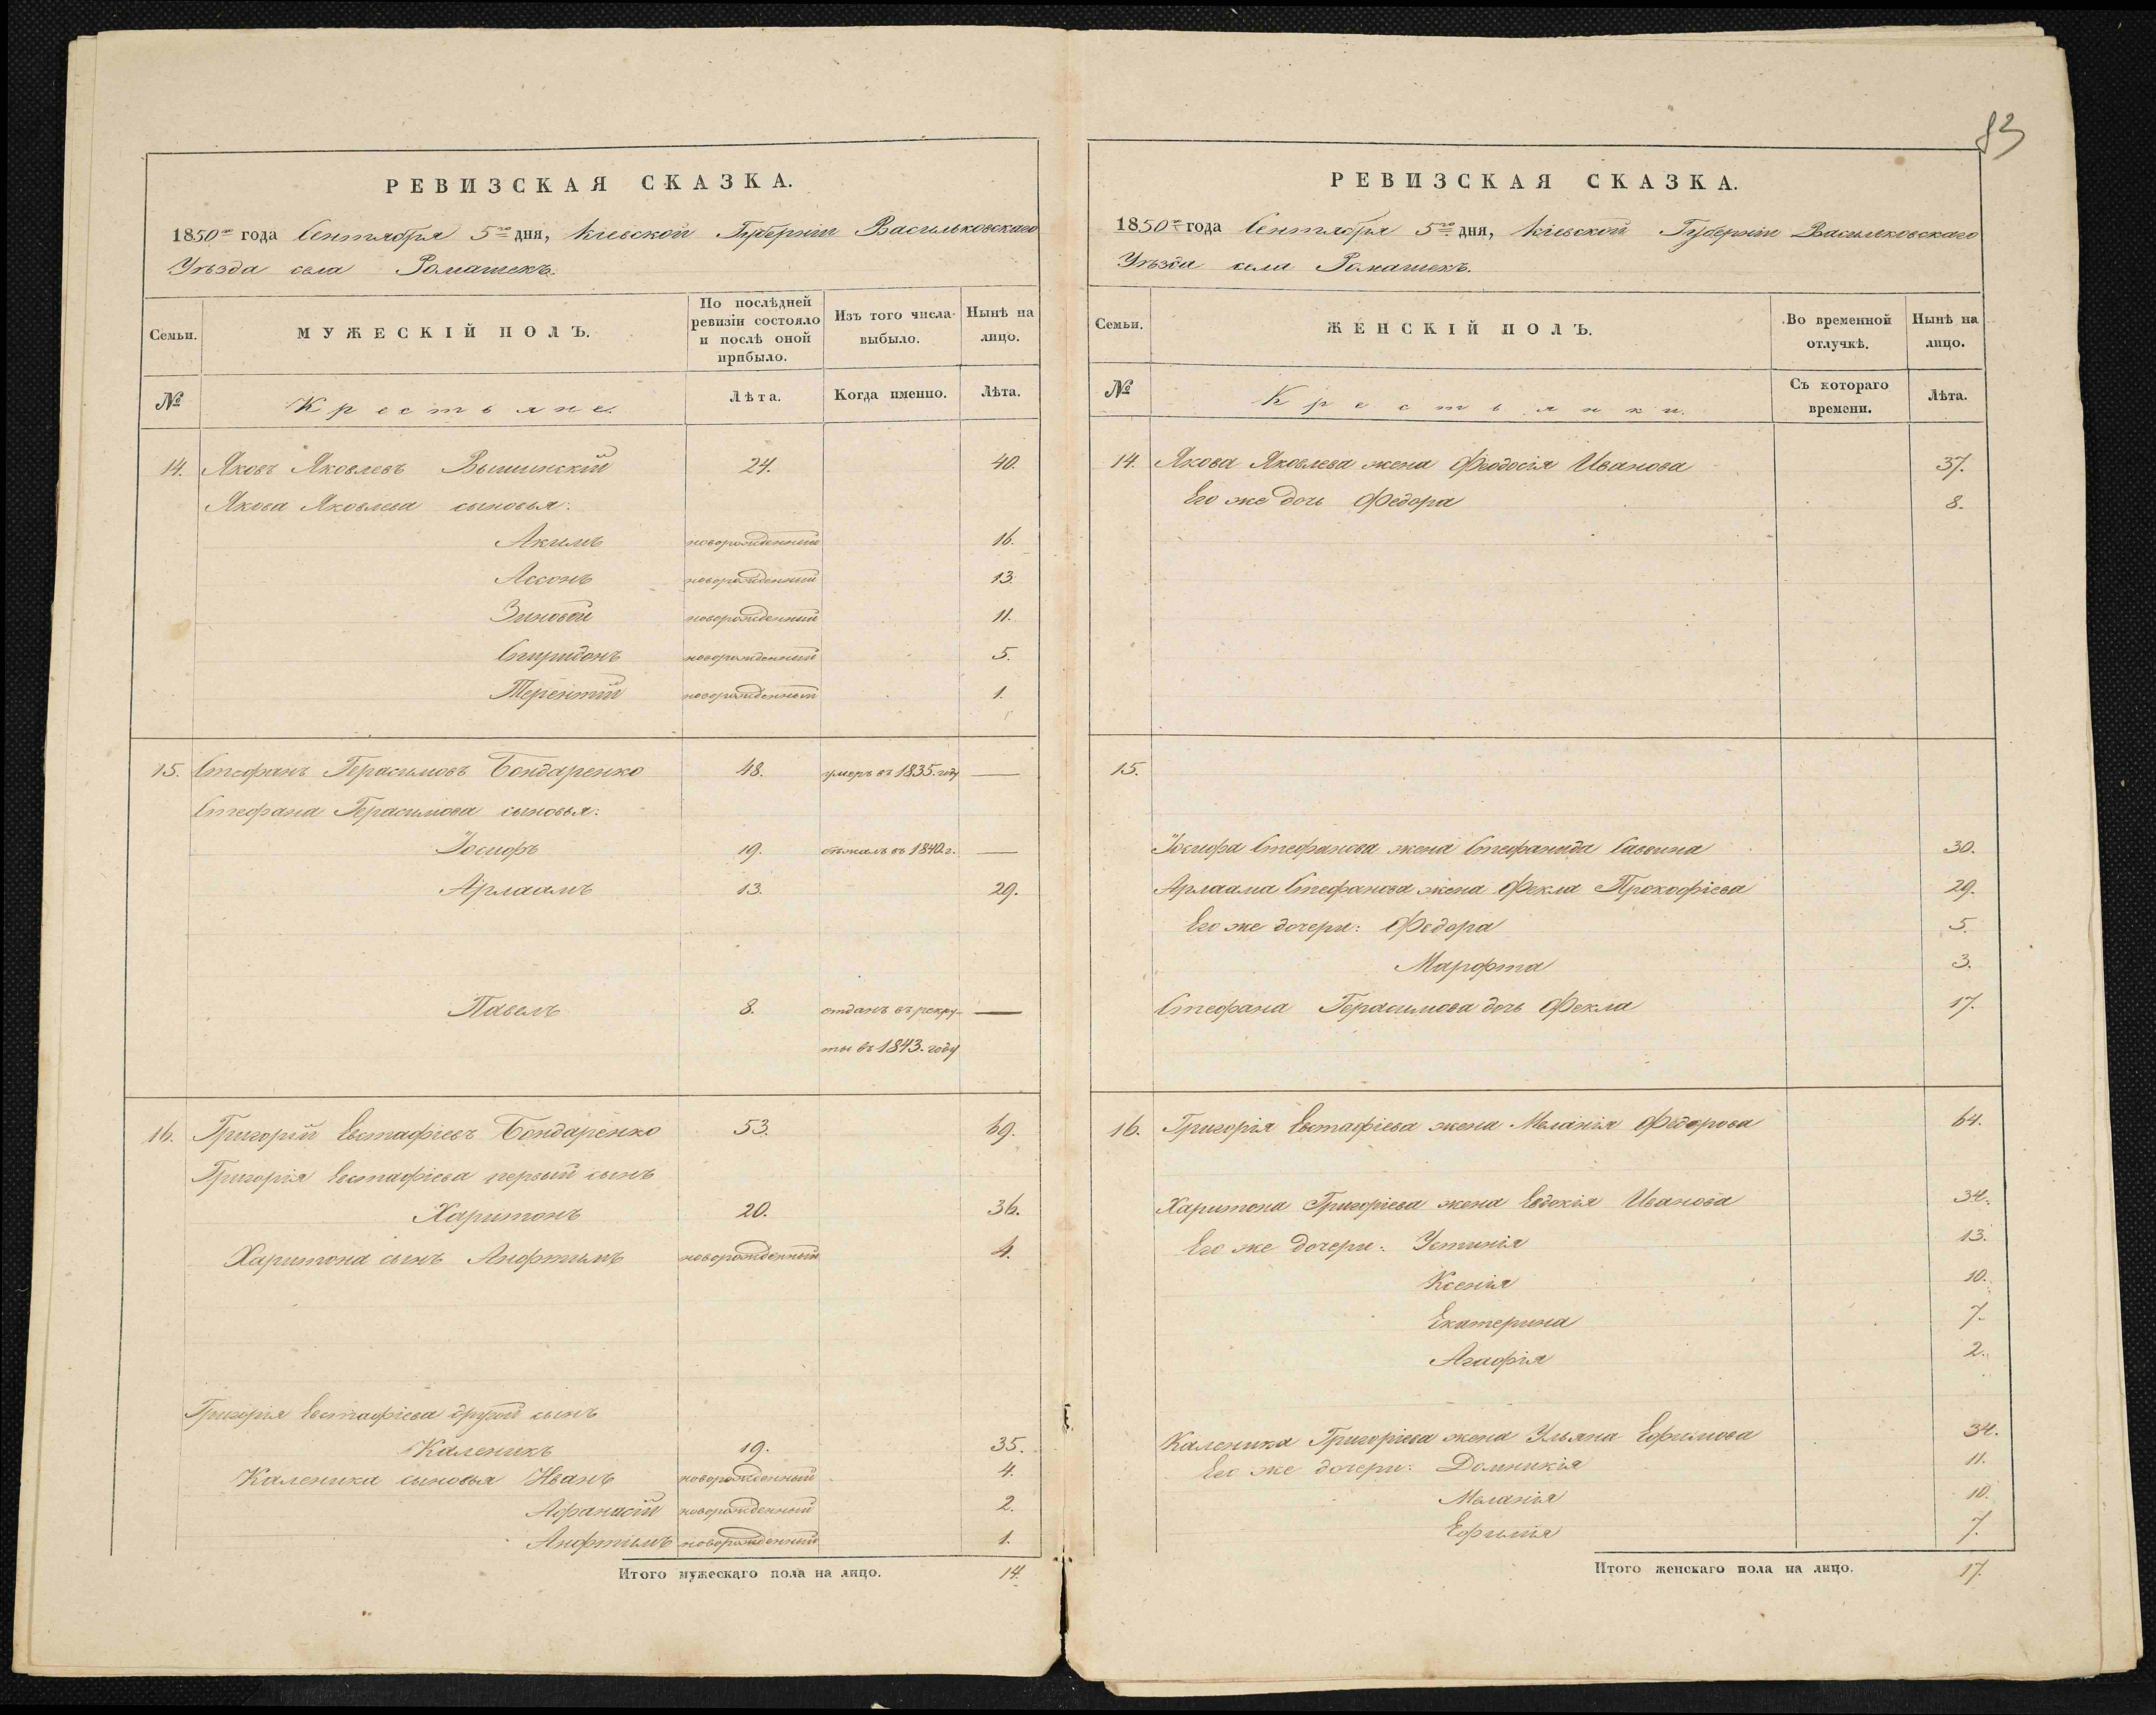 РЕВИЗСКАЯ СКАЗКА.
1850го года Сентября 5го дня, Кіевской Губерніи Васильковскаго
Уѣзда села Ромашекъ.
Семьи.
МУЖЕСКІЙ ПОЛЪ.
По послѣдней ревизіи состояло и послѣ оной прибыло.
Изъ того числа выбыло.
Нынѣ на лицо.
№
Крестьяне.
Лѣта.
Когда именно.
Лѣта.
14. Яковъ Яковлевъ Вышинскій 24. 40.
Якова Яковлева сыновья:
Акимъ новорожденный 16.
Ассонъ новорожденный 13.
Зиновій новорожденный 11.
Спиридонъ новорожденный 5.
Терентій новорожденный 1.
15. Стефанъ Герасимовъ Бондаренко 48. умеръ въ 1835. году —
Стефана Герасимова сыновья:
Іосифъ 19. бѣжалъ въ 1840. г. —
Арлаамъ 13. 29.
Павелъ 8. отданъ въ рекру- —
ты въ 1843. году
16. Григорій Евстафіевъ Бондаренко 53. 69.
Григорія Евстафіева первый сынъ
Харитонъ 20. 36.
Харитона сынъ Анфтимъ новорожденный 4.
Григорія Евстафіева другой сынъ
Каленикъ 19. 35.
Каленика сыновья Иванъ новорожденный 4.
Афанасій новорожденный 2.
Анфтимъ новорожденный 1.
Итого мужескаго пола на лицо. 14.
83
РЕВИЗСКАЯ СКАЗКА.
1850го года Сентября 5го дня, Кіевской Губерніи Васильковскаго
Уѣзда села Ромашекъ.
Семьи.
ЖЕНСКІЙ ПОЛЪ.
Во временной отлучкѣ.
Нынѣ на лицо.
№
Крестьянки.
Съ котораго времени.
Лѣта.
14. Якова Яковлева жена Феодосія Иванова 37.
Его же дочь Федора 8.
15.
Іосифа Стефанова жена Стефанида Саввина 30.
Арлаама Стефанова жена Фекла Прокофіева 29.
Его же дочери: Федора 5.
Марфта 3.
Стефана Герасимова дочь Фекла 17.
16. Григорія Евстафіева жена Меланія Федорова 64.
Харитона Григоріева жена Евдокія Иванова 34.
Его же дочери: Устинія 13.
Ксенія 10.
Екатерина 7.
Агафія 2.
Каленика Григоріева жена Ульяна Ефимова 34.
Его же дочери: Домникія 11.
Меланія 10.
Ефимія 7.
Итого женскаго пола на лицо. 17.